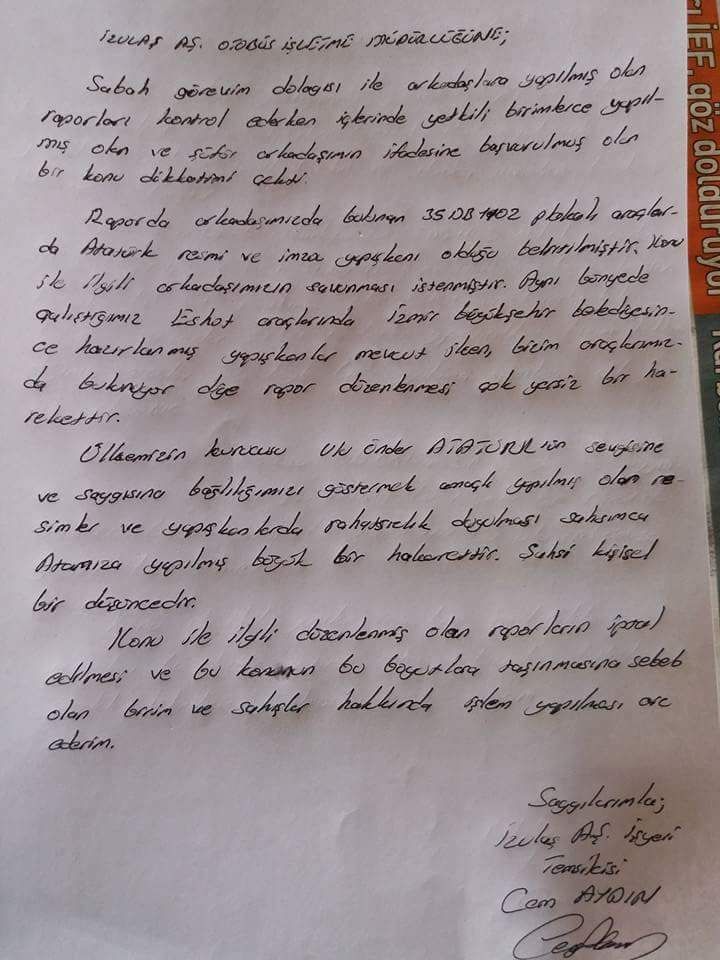 İZULAŞ AŞ. OTOBÜS İŞLETME MÜDÜRLÜĞÜNE;
Sabah görevim dolayısı ile arkadaşlara yapılmış olan
raporları kontrol ederken içlerinde yetkili birimlerce yapıl-
mış olan ve şöför arkadaşımın ifadesine başvurulmuş olan
bir konu dikkatimi çekti.
Raporda arkadaşımızda bulunan 35 DB 1402 plakalı araçlar-
da Atatürk resmi ve imza yapışkanı olduğu belirtilmiştir. Konu
ile ilgili arkadaşımızın savunması istenmiştir. Aynı bünyede
çalıştığımız Eshot araçlarında İzmir büyükşehir belediyesin-
ce hazırlanmış yapışkanlar mevcut iken, bizim araçlarımız-
da bulunuyor diye rapor düzenlenmesi çok yersiz bir ha-
rekettir.
Ülkemizin kurucusu Ulu önder ATATÜRK'ün sevgisine
ve saygısına bağlılığımızı göstermek amaçlı yapılmış olan re-
simler ve yapışkanlarda rahatsızlık duyulması şahsımca
Atamıza yapılmış büyük bir hakarettir. Şahsi kişisel
bir düşüncedir.
Konu ile ilgili düzenlenmiş olan raporların iptal
edilmesi ve bu konunun bu boyutlara taşınmasına sebeb
olan birim ve şahışlar hakkında işlem yapılması arz
ederim.
Saygılarımla;
İzulaş AŞ. İşyeri
Temsilcisi
Cem AYDIN
rı İEF, göz dolduruyor